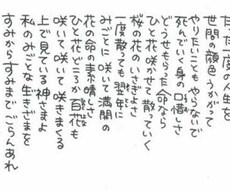 たった一度の人生を
世間の顔色うかがって
やりたいこともやらないで
死んでいく身の口惜しさ
どうせもらった命なら
ひと花咲かせて散っていく
桜の花のいさぎよさ
一度散っても翌年に
みごとに咲いて満開の
花の命の素晴しさ
ひと花どころか百花も
咲いて咲いて咲きまくる
上で見ている神さまよ
私のみごとな生きざまを
すみからすみまでごらんあれ